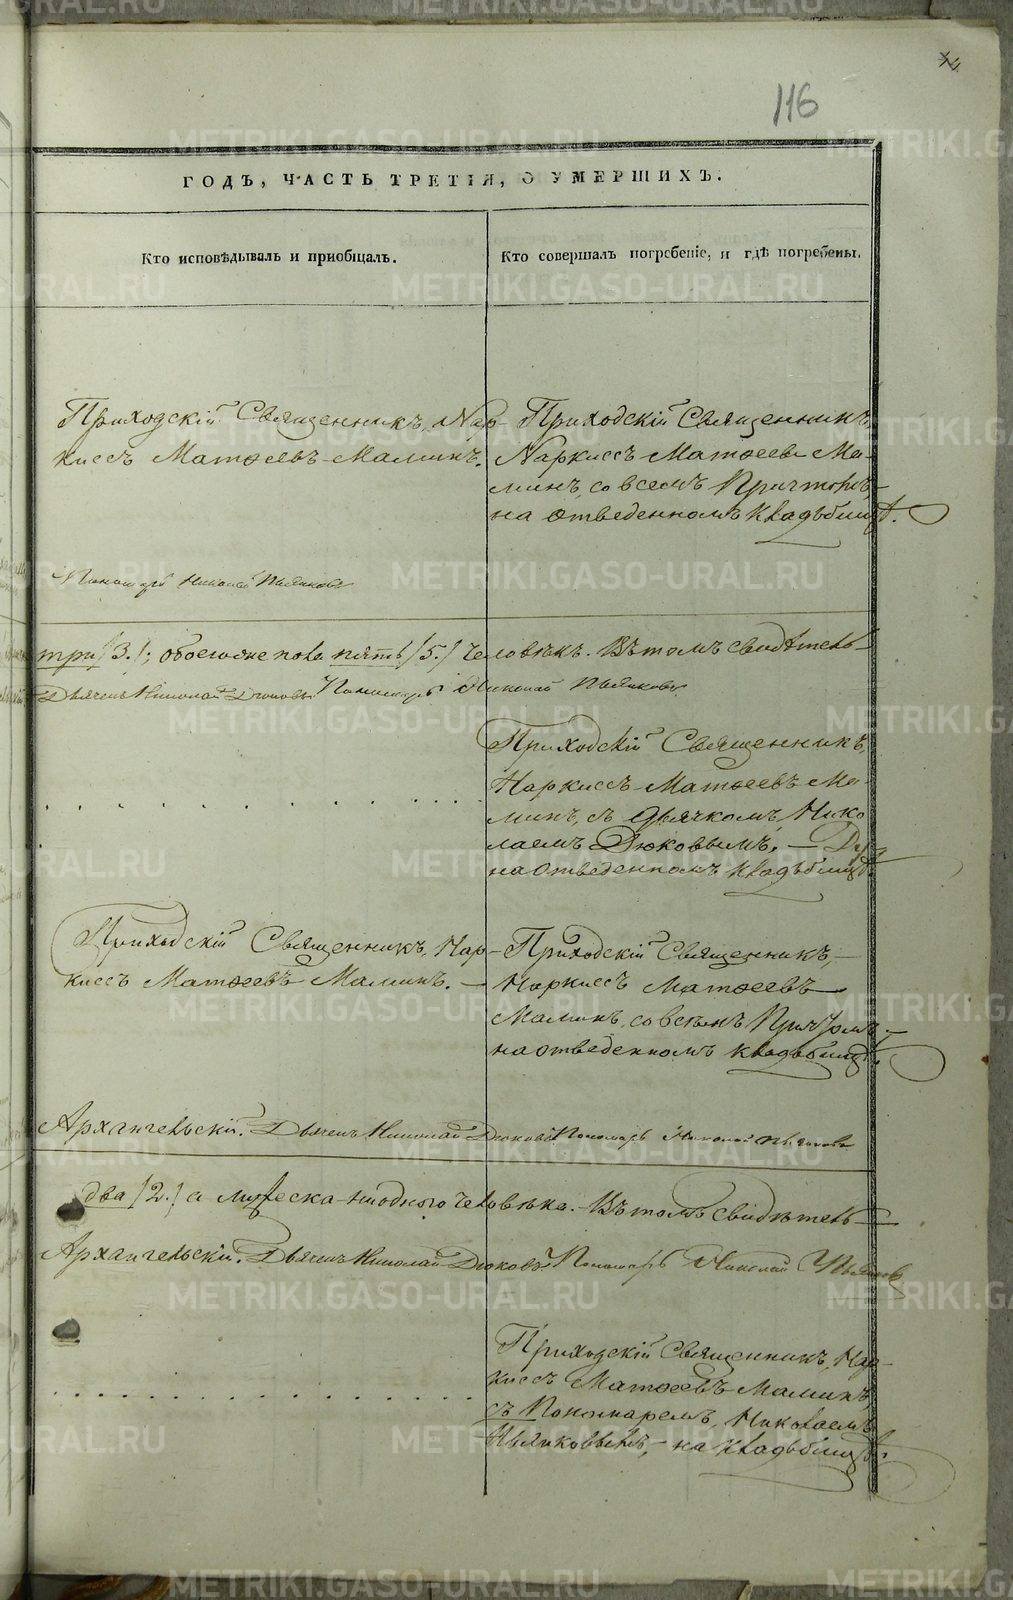 116
ГОДЪ, ЧАСТЬ ТРЕТІЯ, О УМЕРШИХЪ.
Кто исповѣдывалъ и пріобщалъ.
Кто совершалъ погребеніе, и гдѣ погребены.
Приходскій Священникъ, Нар-
киссъ Матѳеевъ Маминъ.
Приходскій Священникъ,
Наркиссъ Матѳеевъ Ма-
минъ, со всемъ Причтомъ
на отведенномъ кладьбищѣ.
Пономарь Николай
три /3./; обоегоже пола пять /5./ человѣкъ. Въ томъ свидѣтель-
Дьячекъ Николай Дюковъ Пономарь Николай
Приходскій Священникъ,
Наркиссъ Матѳеевъ Ма-
минъ, съ дьячкомъ Нико
лаемъ Дюковымъ, —
на отведенномъ кладьбищѣ.
Приходскій Священникъ, Нар-
киссъ Матѳеевъ Маминъ. —
Приходскій Священникъ, —
Наркиссъ Матѳеевъ
Маминъ, со всѣмъ Причтомъ, —
на отведенномъ кладьбищѣ.
Архангельскій. Дьячекъ Николай Дюковъ Пономарь Николай
два /2./ а мужеска ни одного человѣка. Въ томъ свидѣтель-
Архангельскій. Дьячекъ Николай Дюковъ Пономарь Николай
Приходскій Священникъ, Нар-
киссъ Матѳеевъ Маминъ,
съ Пономаремъ, Николаемъ
на кладьбищѣ.
METRIKI.GASO-URAL.RU